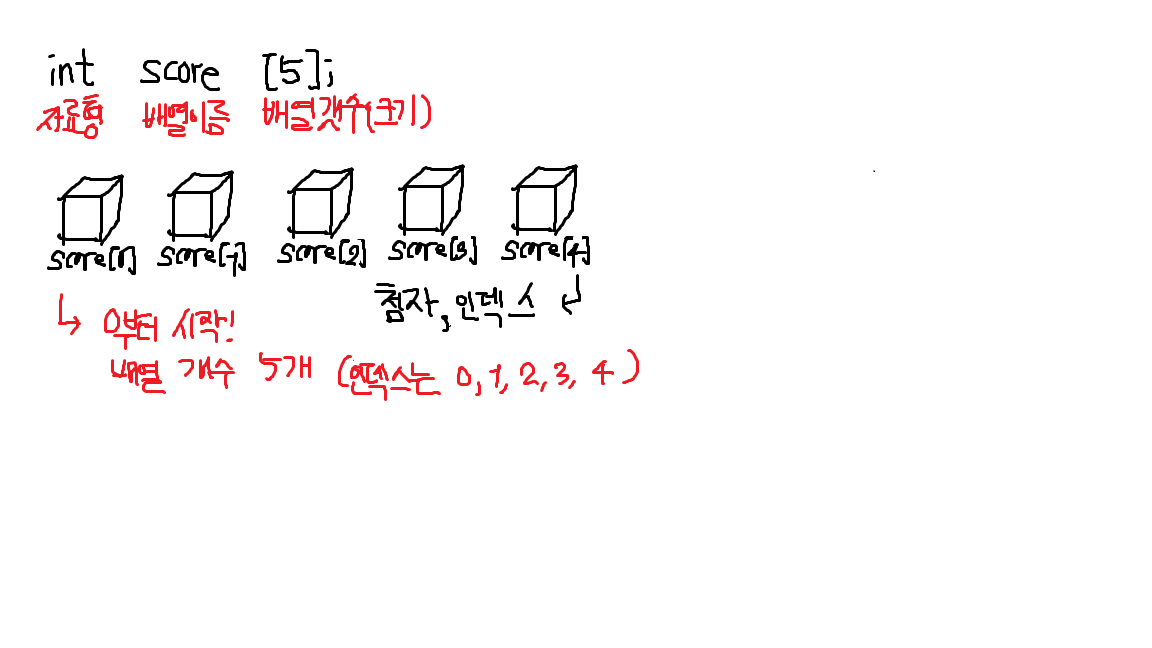 int score [5];
자료형 배열이름 배열갯수(크기)
score[0] score[1] score[2] score[3] score[4]
첨자, 인덱스
0부터 시작!
배열 개수 5개 (인덱스는 0, 1, 2, 3, 4)